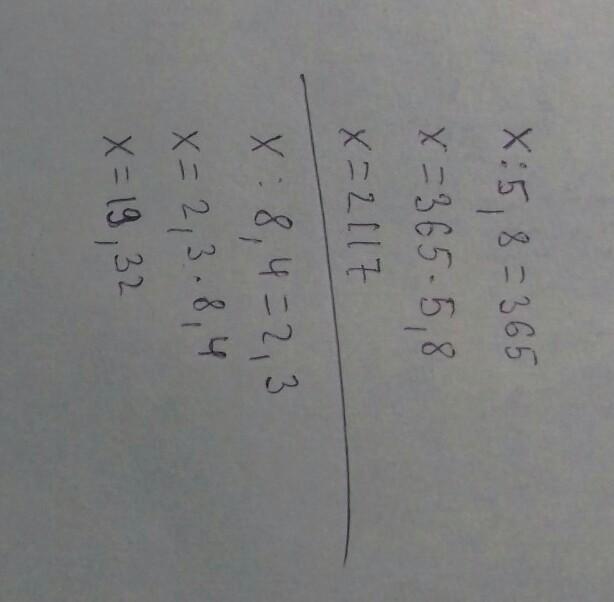 x:5,8=365
x=365·5,8
x=2117
x:8,4=2,3
x=2,3·8,4
x=19,32